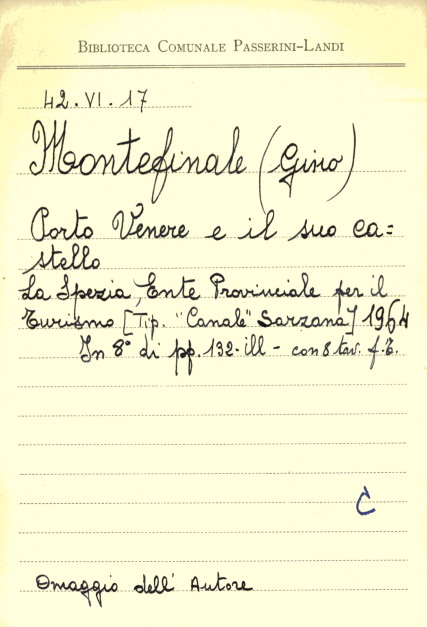 BIBLIOTECA COMUNALE PASSERINI-LANDI
42.VI.17
Montefinale (Gino)
Porto Venere e il suo ca=
stello
La Spezia, Ente Provinciale per il
Turismo [Tip. "Canale" Sarzana] 1964
In 8° di pp. 132-ill - con 8 tav. f.t.
C
Omaggio dell' Autore